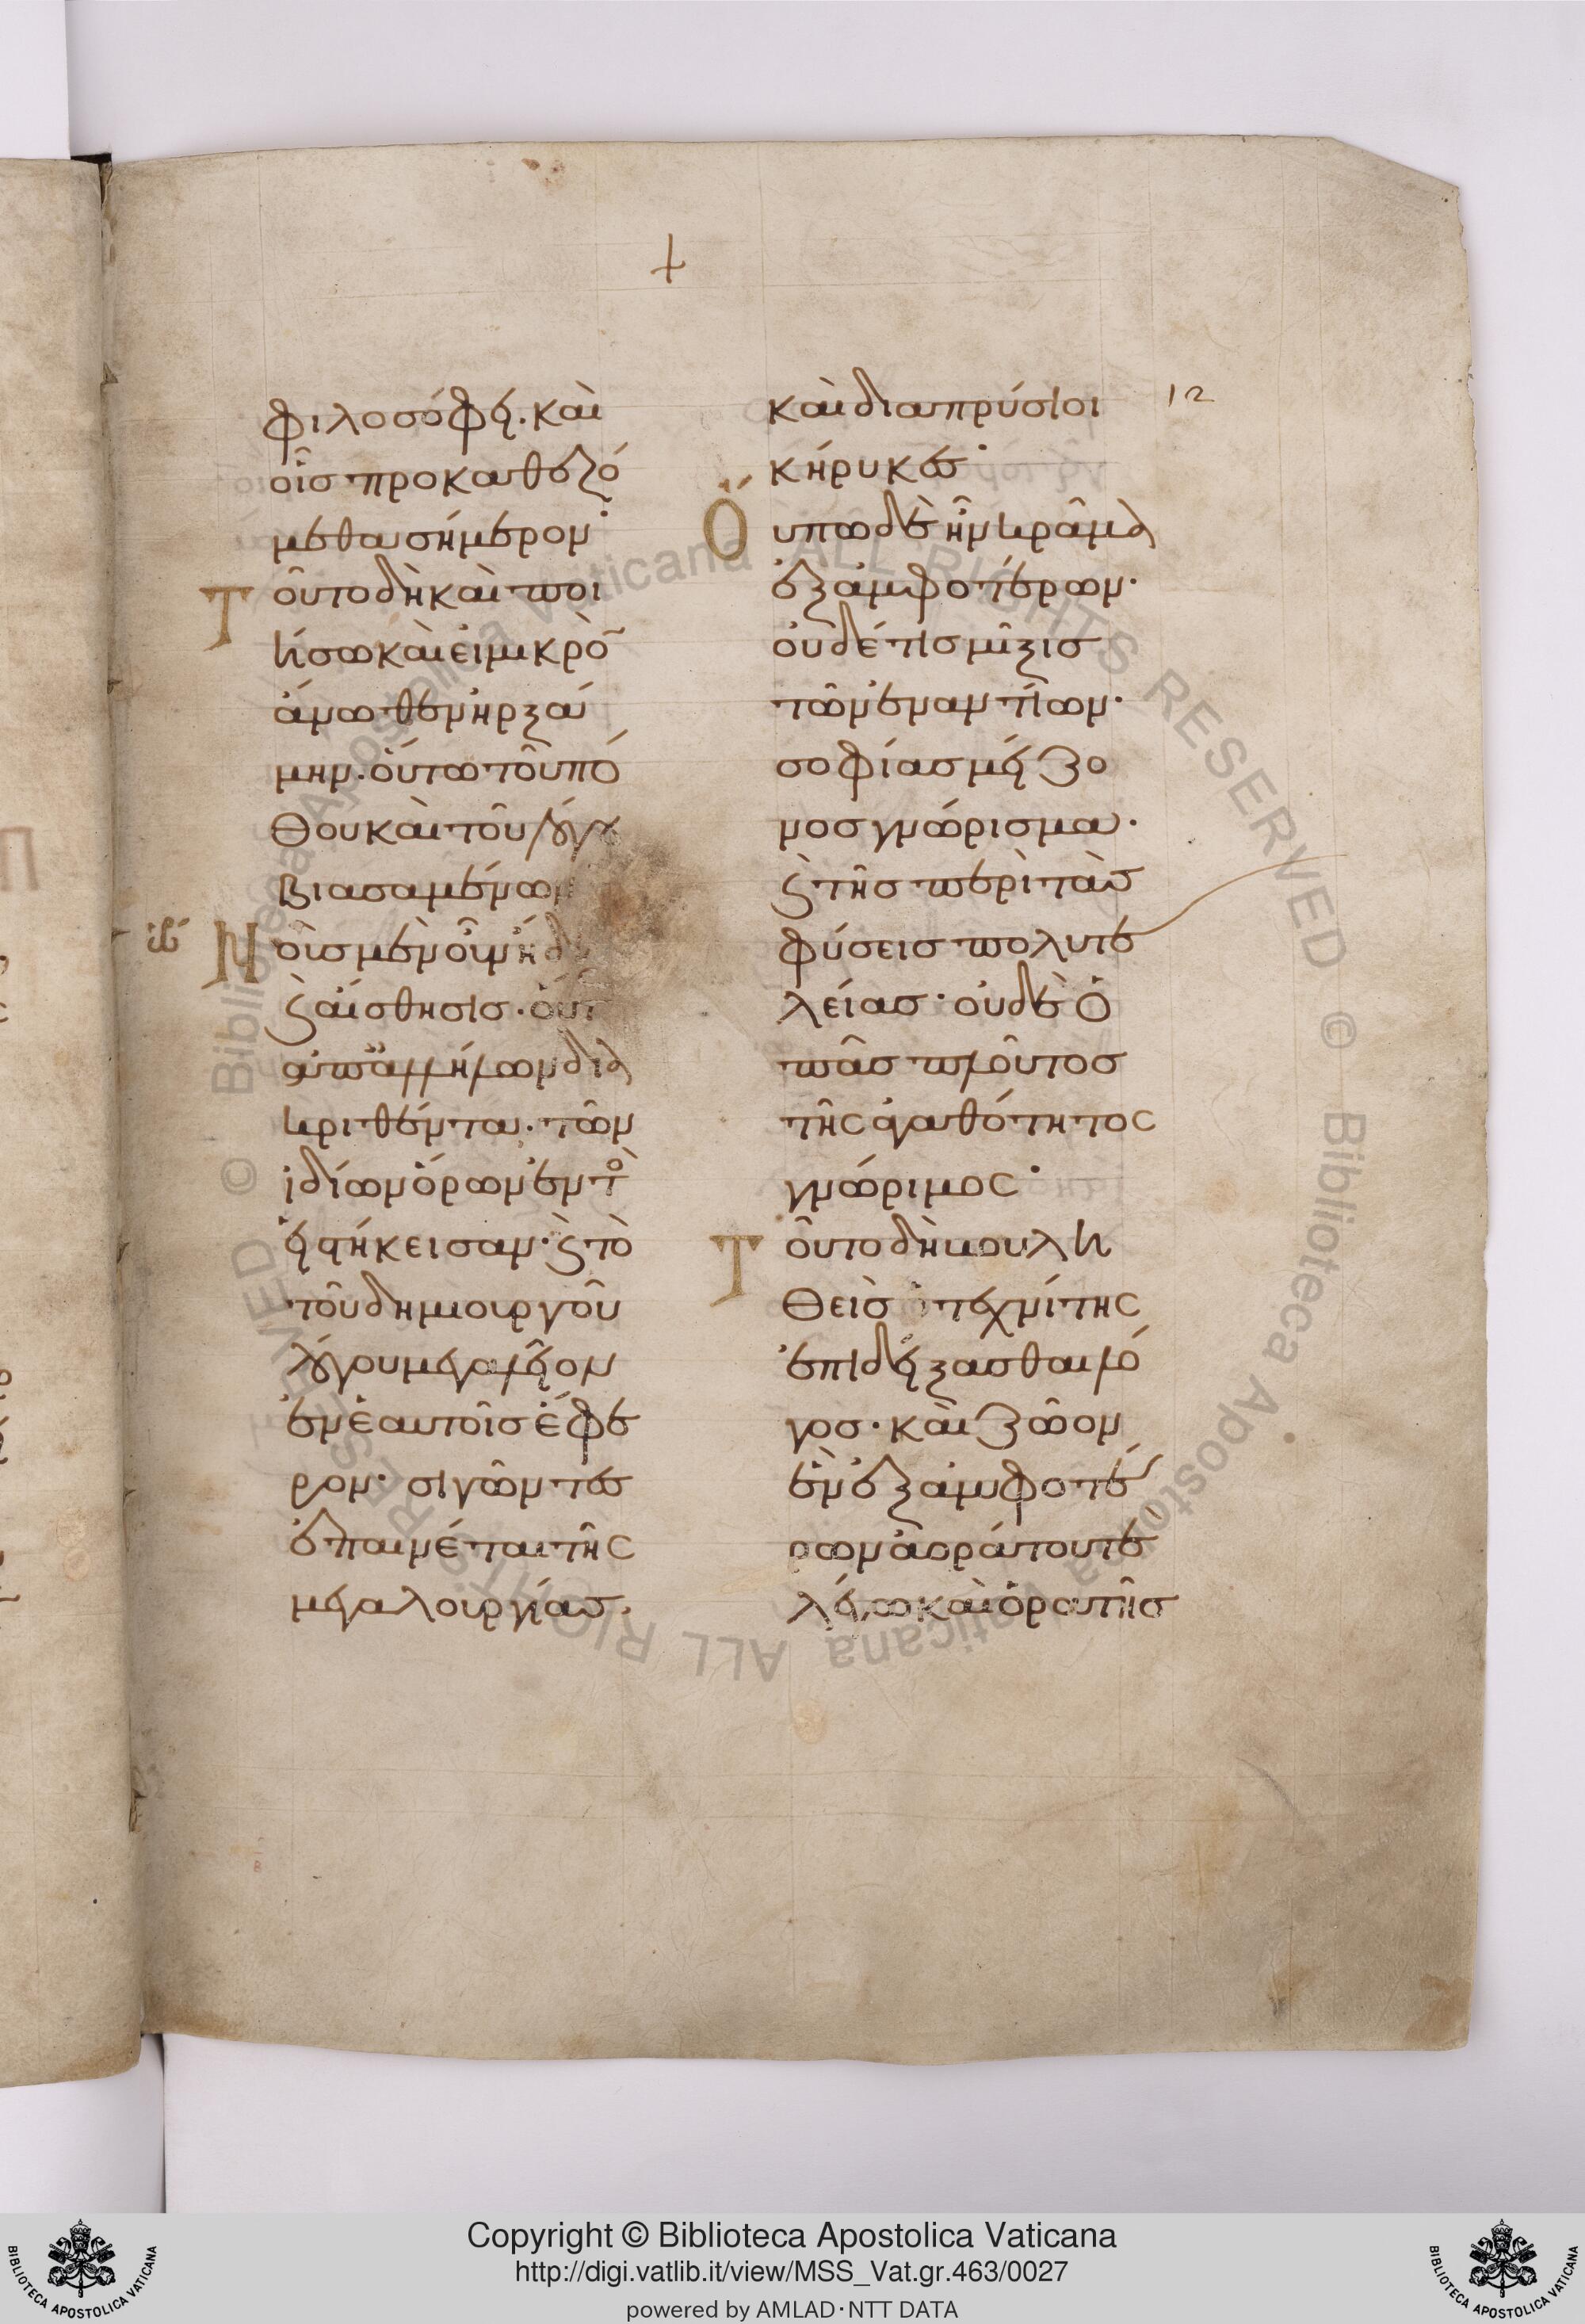 +
12
φιλοσόφει. καὶ
οἷσ προκαθεζό
μεθα σήμερον·
Τοῦτο δὴ καὶ ποι
ήσω καὶ εἰ μικρὸ̃
ἄνωθεν ἠρξά
μην. οὕτω τοῦ πό
θου καὶ τοῦ λόγου
βιασαμένων
ιβ Νοῦσ μὲν οὖν ἤδη
ς αἴσθησισ. οὕτ
ἀπ' ἀλλήλων δια
κριθέντα. τῶν
ἰδίων ὅρων ἐντὸ
εἱστήκεισαν· ς τὸ
τοῦ δημιουργοῦ
λόγου μεγαλεῖον
ἐν ἑαυτοῖσ ἔφε
ρον· σιγῶντεσ
ἐπαινέται τῆς
μεγαλουργίασ.
καὶ διαπρύσιοι
κήρυκεσ·
Οὔπω δὲ ἦν κρᾶμα
ἐξ ἀμφοτέρων·
οὐδέ τισ μῖξισ
τῶν ἐναντίων·
σοφίασ μείζο
νοσ γνώρισμα.
ς τῆσ περὶ τὰσ
φύσεισ πολυτε
λείασ· οὐδὲ ὁ
πᾶσ πλοῦτοσ
τῆς ἀγαθότητος
γνώριμος·
Τοῦτο δὴ βουλη
θεὶσ ὁ τεχνίτης
ἐπιδείξασθαι λό
γοσ· καὶ ζῶον
ἓν ἐξ ἀμφοτέ
ρων ἀοράτου τε
λέγω καὶ ὁρατῆσ
Copyright © Biblioteca Apostolica Vaticana
http://digi.vatlib.it/view/MSS_Vat.gr.463/0027
powered by AMLAD·NTT DATA
BIBLIOTECA APOSTOLICA VATICANA
BIBLIOTECA APOSTOLICA VATICANA
© Biblioteca Apostolica Vaticana ALL RIGHTS RESERVED
© Biblioteca Apostolica Vaticana ALL RIGHTS RESERVED